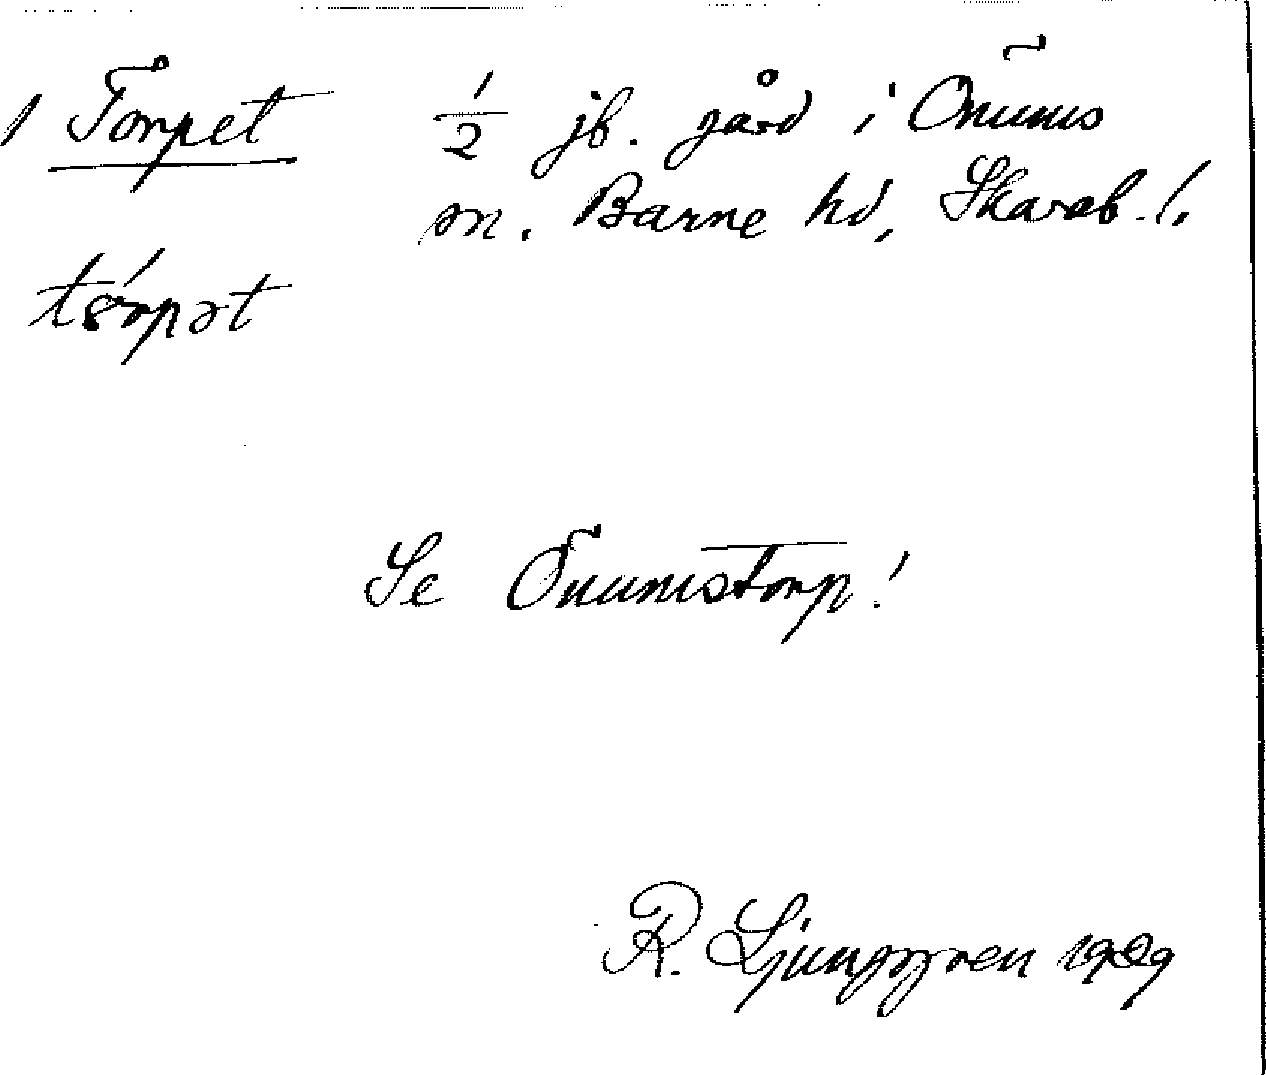 1 Torpet 1/2 jb. gård i Önums
sn. Barne hd, Skarab. l.
tórpət
Se Önumstorp!
R. Ljunggren 1909